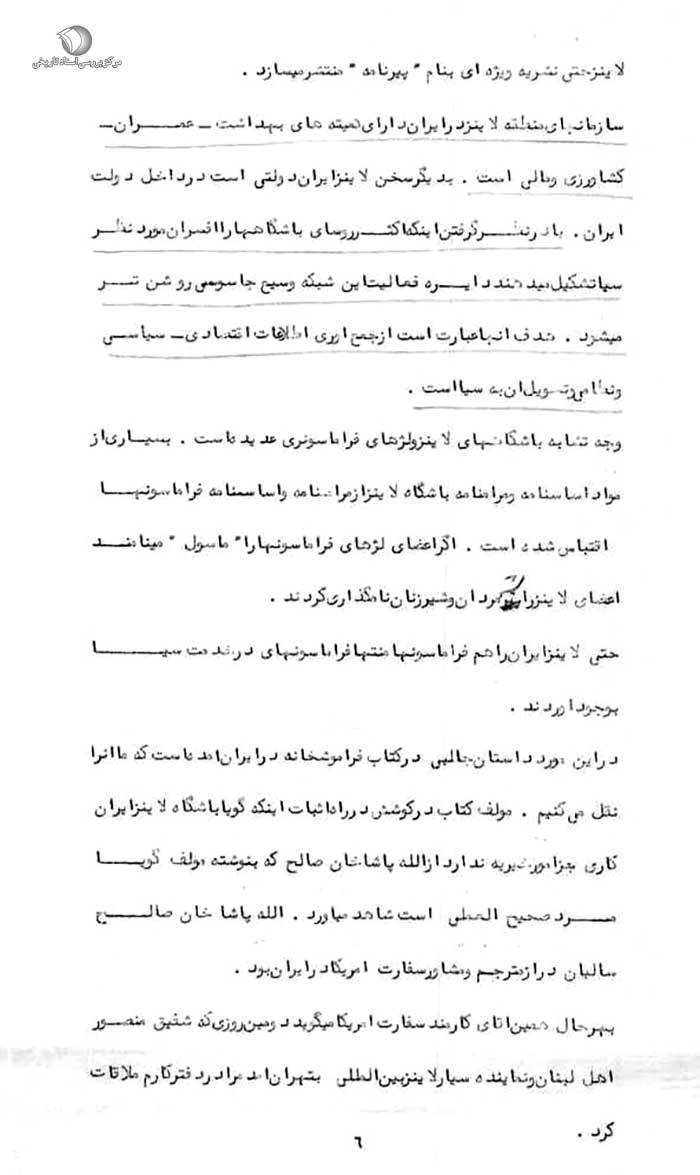 مرکز بررسی اسناد تاریخی
لاینز حتی نشریه ویژه ای بنام " پیرنامه " منتشر میسازد .
سازمانهای منطقه لاینز در ایران دارای کمیته های بهداشت ـ عمران ـ
کشاورزی ومالی است . بدیگر سخن لاینز ایران دولتی است در داخل دولت
ایران . با در نظر گرفتن اینکه اکثر روسای باشگاهها را افسران مورد نظر
سیا تشکیل میدهند دایره فعالیت این شبکه وسیع جاسوسی روشن تر
میشود . هدف آنها عبارت است از جمع اوری اطلاعات اقتصادی ـ سیاسی
ونظامی وتحویل ان به سیا است .
وجه تشابه باشگاههای لاینز ولژهای فراماسونری عدیده است . بسیاری از
مواد اساسنامه ومرامنامه باشگاه لاینز از مرامنامه واساسنامه فراماسونها
اقتباس شده است . اگر اعضای لژهای فراماسونها را " ماسول " مینامند
اعضای لاینز را شیر مردان وشیرزنان نامگذاری کردند .
حتی لاینز ایران را هم فراماسونها منتها فراماسونهای در خدمت سیا
بوجود اوردند .
در این مورد داستان جالبی در کتاب فراموشخانه در ایران امده است که ما انرا
نقل می کنیم . مولف کتاب در کوشش در راه اثبات اینکه گویا باشگاه لاینز ایران
کاری بجز امور خیریه ندارد از الله پاشاخان صالح که بنوشته مولف گویا
مرد صحیح العملی است شاهد میاورد . الله پاشا خان صالح
سالیان دراز مترجم ومشاور سفارت امریکا در ایران بود .
بهر حال همین اقای کارمند سفارت امریکا میگوید دومین روزی که شفیق منصور
اهل لبنان ونماینده سیار لاینز بین المللی بتهران امد مرا در دفتر کارم ملاقات
کرد .
٦